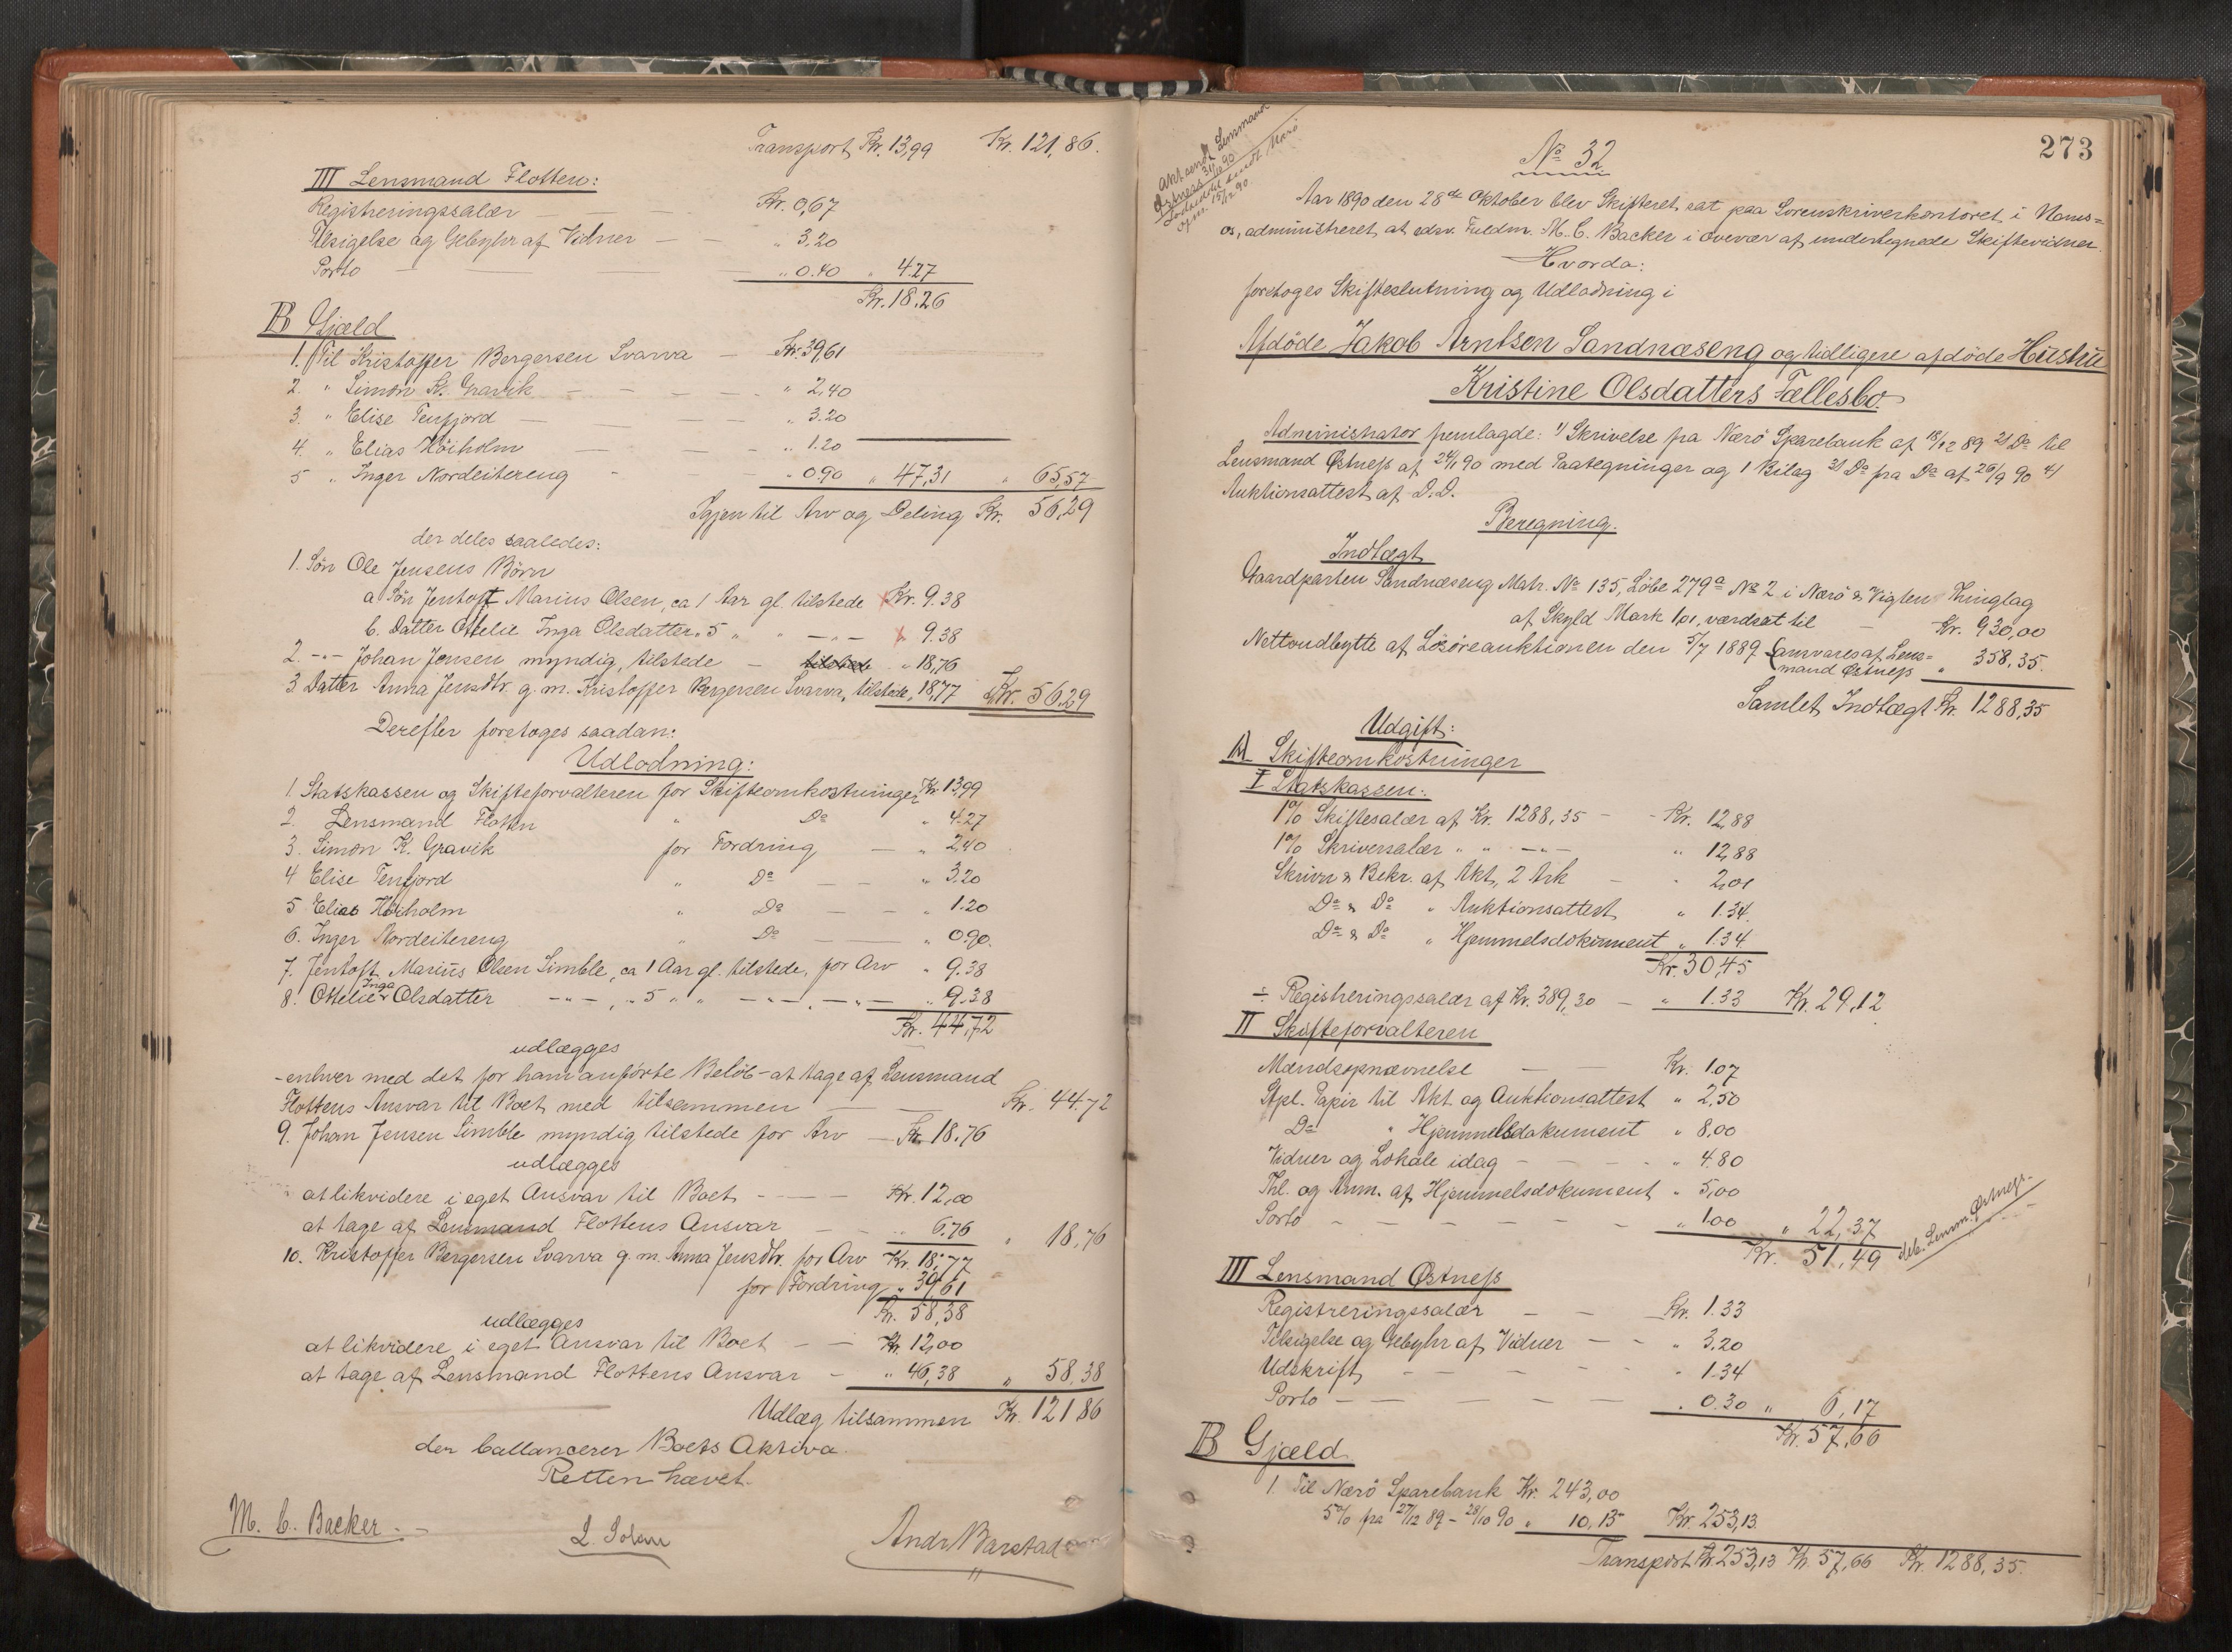 Transport Kr. 13,99 Kr. 121,86.
III Lensmand Flotten:
Registreringssalær — Kr. 0,67
Tilsigelse og Gebyhr af Vidner — " 3.20
Porto — " 0.40 " 4.27
Kr. 18.26
B Gjæld
1. Til Kristoffer Bergersen Svarva — Kr. 39,61
2. " Simon K. Gravik — " 2,40
3. " Elise Tenfjord — " 3.20
4. " Elias Höiholm — " 1.20
5 " Inger Nordeitereng - " 0.90 " 47,31 " 65,57
Igjen til Arv og Deling Kr. 56,29
der deles saaledes:
1. Sön Ole Jensens Börn
a Sön Jentoft Marius Olsen, ca 1 Aar gl. tilstede Kr. 9.38
b. Datter Ottelie Inga Olsdatter " 5 " " —"— " 9.38
2. -"- Johan Jensen myndig, tilstede — tilstede " 18,76
3. Datter Anna Jensdtr. g. m. Kristoffer Bergersen Svarva, tilstede " 18,77 Kr. 56.29
Derefter foretoges saadan:
Udlodning:
1. Statskassen og Skifteforvalteren for Skifteomkostninger Kr. 13.99
2. Lensmand Flotten " Do " 4.27
3. Simon K. Gravik for Fordring — " 2,40
4 Elise Tenfjord " Do — " 3.20
5 Elias Höiholm " Do — " 1.20
6. Inger Nordeitereng " Do — " 0.90.
7. Jentoft Marius Olsen Simble, ca 1 Aar gl. tilstede, for Arv " 9.38
8. Ottelie Inga Olsdatter -"-, " 5 " " -"-, -"- " 9.38
Kr. 44,72
udlægges
-enhver med det for ham anførte Belöb- at tage af Lensmand
Flottens Ansvar til Boet med tilsammen — Kr. 44.72
9. Johan Jensen Simble myndig tilstede for Arv — Kr. 18.76
udlægges
at likvidere i eget Ansvar til Boet — Kr. 12,00
at tage af Lensmand Flottens Ansvar — " 6.76 " 18,76
10. Kristoffer Bergersen Svarva g. m. Anna Jensdtr. for Arv Kr. 18,77
for Fordring " 39,61
Kr. 58,38
udlægges
at likvidere i eget Ansvar til Boet — Kr. 12,00
at tage af Lensmand Flottens Ansvar — " 46,38 " 58,38
Udlæg tilsammen Kr. 121,86
der ballancerer Boets Aktiva.
Retten hævet.
M. C. Backer.
Andr Barstad
273
Akt sendt Lensmand
Østness
No 32
Aar 1890 den 28de Oktober blev Skifteret sat paa Sorenskriverkontoret i Nams=
os, administreret af edsv. Fuldm. M. C. Backer i overvær af undertegnede Skiftevidner.
Hvorda:
foretoges Skifteslutning og Udlodning i
Afdöde Jakob Arntsen Sandnæseng og tidligere afdöde Hustru
Kristine Olsdatters Fællesbo.
Administrator fremlagde: 1) Skrivelse fra Nærö Sparebank af 18/12 89 2) Do til
Lensmand Østness af 24/1 90 med Paategninger og 1 Bilag 3) Do fra Do af 26/9 90 4)
Auktionsattest af D.D.
Beregning.
Indtægt
Gaardparten Sandnæseng Matr. No 135, Löbe 279a No 2 i Nærö & Vigten Thinglag
af Skyld Mark 1,01, værdsat til — Kr. 930,00
Nettoudbytte af Lösöreauktionen den 5/7 1889 (ansvares af Lens=
mand Østness " 358,35.
Samlet Indtægt Kr. 1288,35
Udgift:
A Skifteomkostninger
I Statskassen:
1% Skiftesalær af Kr. 1288,35 - - Kr. 12,88
1% Skriversalær " " —"— " 12,88
Skrivn & Bekr. af Akt, 2 Ark - " 2,01
Do & Do " Auktionsattest " 1.34.
Do & Do " Hjemmelsdokument " 1.34
Kr. 30,45
÷ Registreringssalær af Kr. 389,30 — " 1.33 Kr. 29,12
II Skifteforvalteren
Mændsopnævnelse — Kr. 1.07
Stpl. Papir til Akt og Auktionsattest " 2,50
Do " Hjemmelsdokument " 8,00
Vidner og Lokale idag — " 4.80
Thl. og Anm. af Hjemmelsdokument " 5,00
Porto — " 1.00 " 22,37
Kr. 51,49
deb. Lensm. Østness.
III Lensmand Østness
Registreringssalær — Kr. 1.33
Tilsigelse og Gebyhr af Vidner — " 3.20
Udskrift — " 1.34
Porto — " 0.30 " 6,17
Kr. 57,66
B Gjæld
1. Til Nærö Sparebank Kr. 243,00
5% fra 27/12 89 - 28/10 90 " 10,13 Kr. 253,13.
Transport Kr. 253,13 Kr. 57,66 Kr. 1288,35.